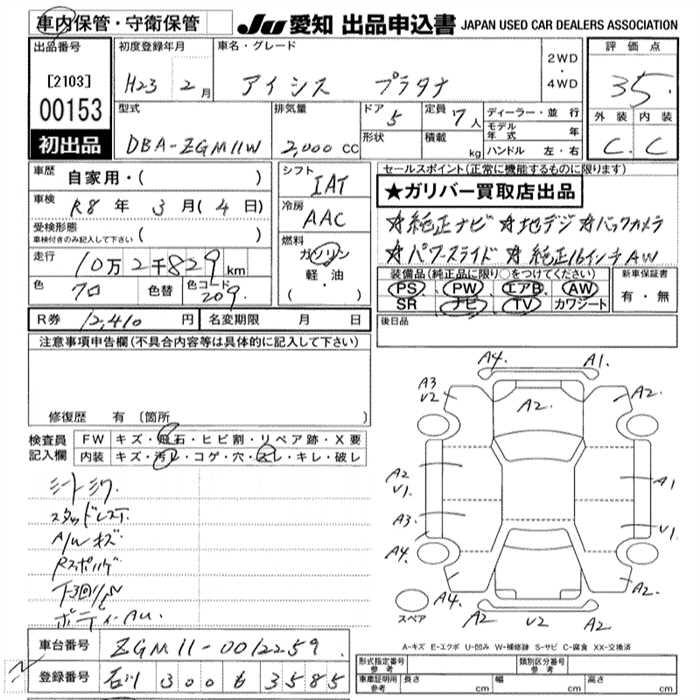 車内保管・守衛保管 JU 愛知 出品申込書 JAPAN USED CAR DEALERS ASSOCIATION
出品番号 初度登録年月 車名・グレード 評価点
[2103] H23 2月 アイシス プラタナ 2WD・4WD 3.5
00153 型式 排気量 ドア 5 定員 7人 ディーラー・並行 外装 内装
初出品 DBA-ZGM11W 2,000cc 形状 積載 kg モデル年式 年 ハンドル 左・右 C. C
車歴 自家用・( ) シフト IAT セールスポイント(正常に機能するものに限ります)
★ガリバー買取店出品
車検 R8年 3月(4日) 冷房 AAC ☆純正ナビ ☆地デジ ☆バックカメラ
受検形態 車検付きのみ記入して下さい ( ) 燃料 ☆パワースライド ☆純正16インチAW
走行 10万2千829km ガソリン 軽・油 ・( ) 装備品(純正品に限り○をつけてください) 新車保証書
色 クロ 色替 色コード 209. PS PW エアB AW 有・無
SR ナビ TV カワシート
R券 12,410円 名変期限 月 日 後日品
注意事項申告欄(不具合内容等は具体的に記入して下さい)
修復歴 有(箇所 )
検査員記入欄 FW キズ・飛石・ヒビ割・リペア跡・X要
内装 キズ・汚レ・コゲ・穴・スレ・キレ・破レ
シートシワ.
スタッドレスT.
A/Wキズ
A4. A1.
A3 V2 A2. A2.
A2 V1. A1
A3. V1.
A4. A2.
A4. A2 V2 A2.
スペア
A-キズ E-エクボ U-凹み W-補修跡 S-サビ C-腐食 XX-交換済
車台番号 ZGM11-0012259.
登録番号 石川 300 も 3585
形式指定番号 参考 類別区分番号 参考
車庫証明用 参考 長さ cm 幅 cm 高さ cm